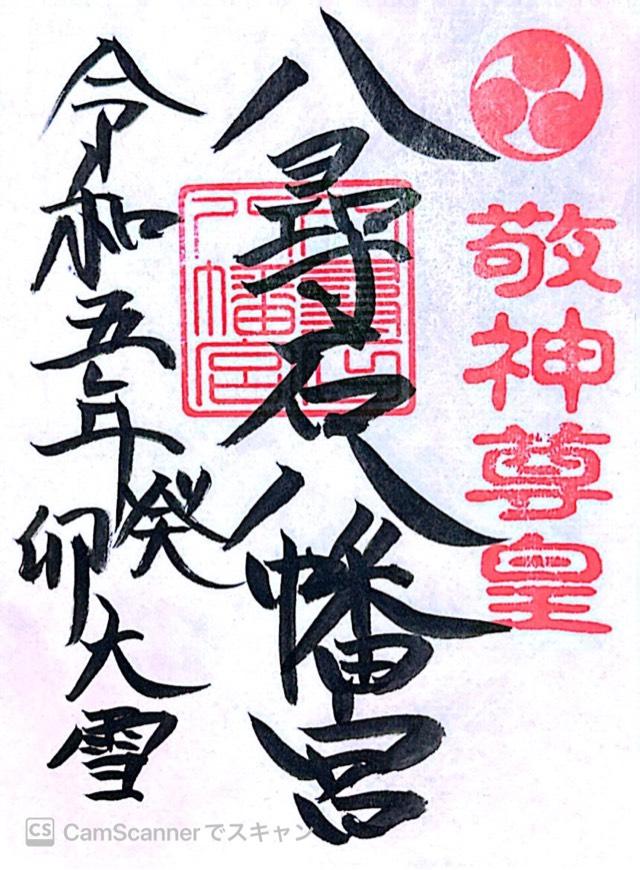 敬神尊皇
八尋石八幡宮
八幡宮
令和五年癸卯大雪
CS CamScannerでスキャン